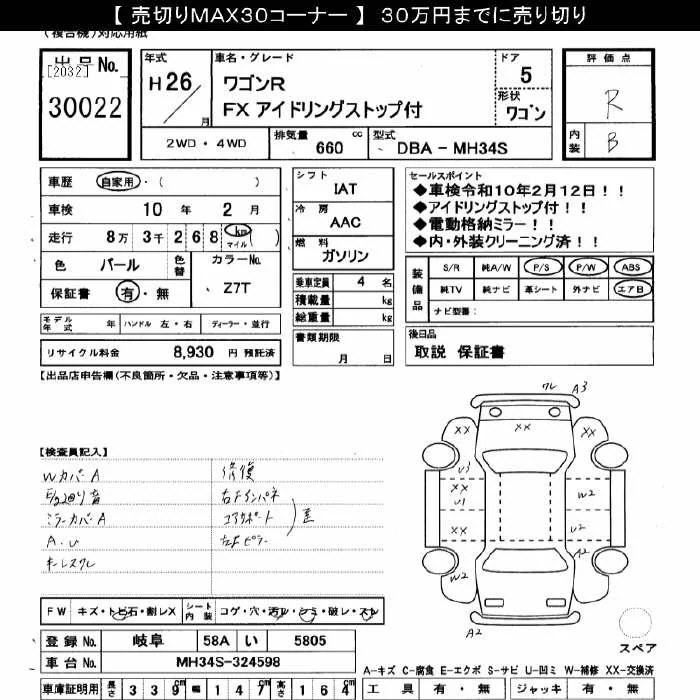 【 売切りMAX30コーナー 】 30万円までに売り切り
(複合機)対応用紙
出品No.
[2032]
30022
年式
H 26 / 月
車名・グレード
ワゴンR
FX アイドリングストップ付
ドア
5
形状
ワゴン
評価点
R
内装
B
2WD・4WD
排気量 660 cc
型式 DBA - MH34S
車歴 自家用・( )
車検 10 年 2 月
走行 8万 3千 2 6 8 km マイル ( )
色 パール 色替
カラーNo.
Z7T
保証書 有・無
シフト
IAT
冷房
AAC
燃料
ガソリン
乗車定員 4 名
積載量 kg
総重量 kg
書類期限
月 日
セールスポイント
◆車検令和10年2月12日!!
◆アイドリングストップ付!!
◆電動格納ミラー!!
◆内・外装クリーニング済!!
装備品
S/R 純A/W P/S P/W ABS
純TV 純ナビ 革シート 外ナビ エアB
ナビ型番:
モデル年式 年 ハンドル 左・右 ディーラー・並行
リサイクル料金 8,930 円 預託済
後日品
取説 保証書
【出品店申告欄(不良箇所・欠品・注意事項等)】
【検査員記入】
Wカバー A
ミラーカバー A
A・U
キーレスクレ
修復
右Fインパネ
コアサポート
左Fピラー
ワレ A3
XX XX XX
U3
XX
U1
W2
XX
U2
W2
A2
A2
スペア
FW キズ・トビ石・割レX
シート内装 コゲ・穴・汚レ・シミ・破レ・スレ
登録No. 岐阜 58A い 5805
車台No. MH34S-324598
車庫証明用 長さ 3 3 9 cm 幅 1 4 7 cm 高さ 1 6 4 cm
A-キズ C-腐食 E-エクボ S-サビ U-凹ミ W-補修 XX-交換済
工具 有・無 ジャッキ 有・無